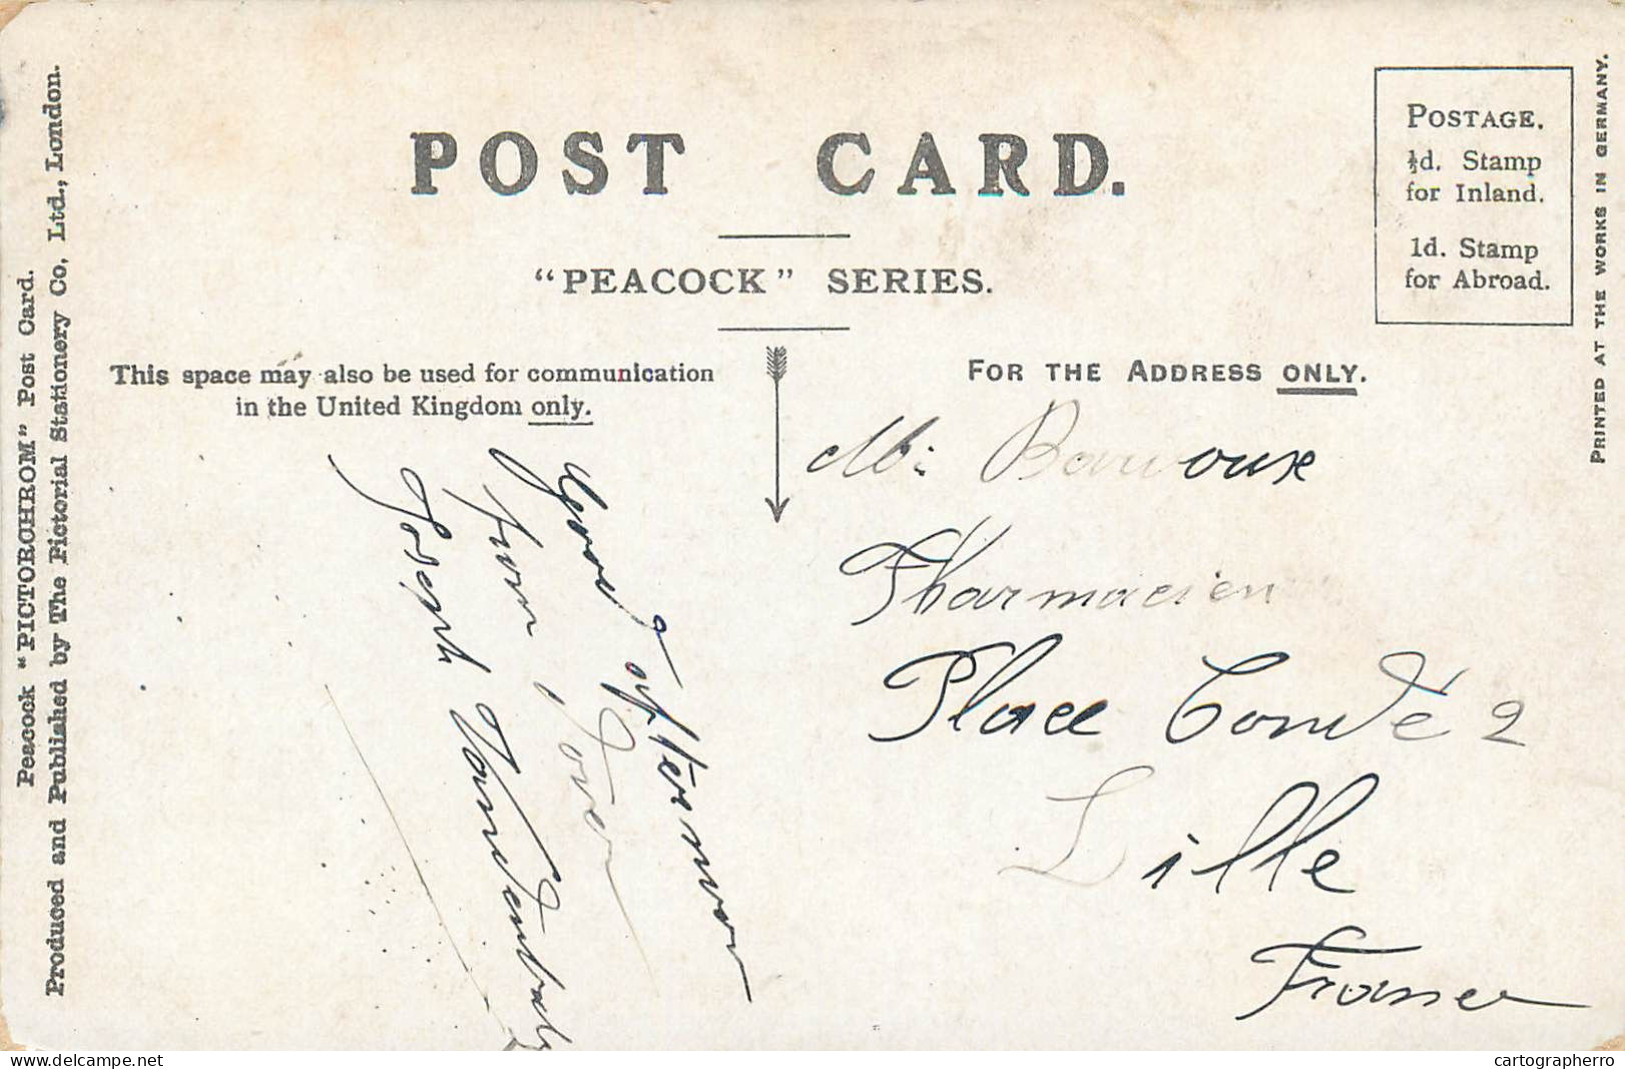 POST CARD.
"PEACOCK" SERIES.
POSTAGE.
½d. Stamp
for Inland.
1d. Stamp
for Abroad.
PRINTED AT THE WORKS IN GERMANY.
Peacock "PICTORCHROM" Post Card.
Produced and Published by The Pictorial Stationery Co, Ltd., London.
This space may also be used for communication
in the United Kingdom only.
FOR THE ADDRESS ONLY.
Good afternoon
from Dover
Joseph
Mr
Pharmacien
Place Condé 2
Lille
France
delcampe.net
cartographerro